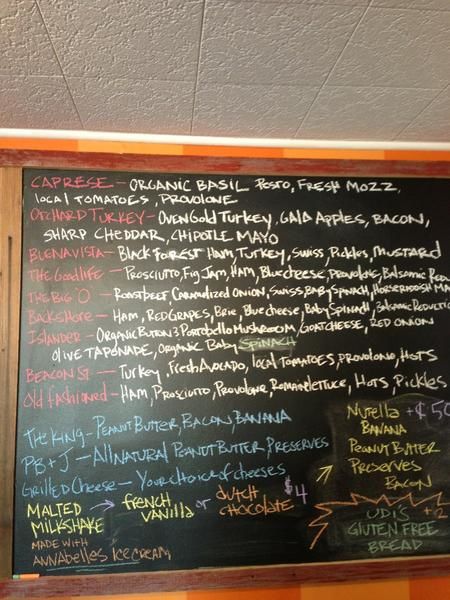 CAPRESE - ORGANIC BASIL PESTO, FRESH MOZZ,
LOCAL TOMATOES, PROVOLONE
ORCHARD TURKEY - OVENGOLD TURKEY, GALA APPLES, BACON,
SHARP CHEDDAR, CHIPOTLE MAYO
BUENAVISTA - BLACK FOREST HAM, TURKEY, SWISS, PICKLES, MUSTARD
THE GOODLIFE - PROSCIUTTO, FIG JAM, HAM, BLUE CHEESE, PROVOLONE, BALSAMIC REDU
THE BIG "O" - ROAST BEEF, CARAMALIZED ONION, SWISS, BABY SPINACH, HORSERADISH MA
BACKSHORE - HAM, RED GRAPES, BRIE, BLUE CHEESE, BABY SPINACH, BALSAMIC REDUCTIO
ISLANDER - ORGANIC BUTTON & PORTOBELLO MUSHROOM, GOAT CHEESE, RED ONION
OLIVE TAPONADE, ORGANIC BABY SPINACH
BEACON ST. - TURKEY, FRESH AVOCADO, LOCAL TOMATOES, PROVOLONE, HOTS
OLD FASHIONED - HAM, PROSCIUTTO, PROVOLONE, ROMAINE LETTUCE, HOTS, PICKLES
THE KING - PEANUT BUTTER, BACON, BANANA
PB + J - ALL NATURAL PEANUT BUTTER, PRESERVES
GRILLED CHEESE - YOUR CHOICE OF CHEESES
NUTELLA +$.50
BANANA
PEANUT BUTTER
PRESERVES
BACON
MALTED
MILKSHAKE
FRENCH
VANILLA OR DUTCH
CHOCOLATE $4
MADE WITH
ANNABELLES ICE CREAM
UDI'S +2
GLUTEN FREE
BREAD